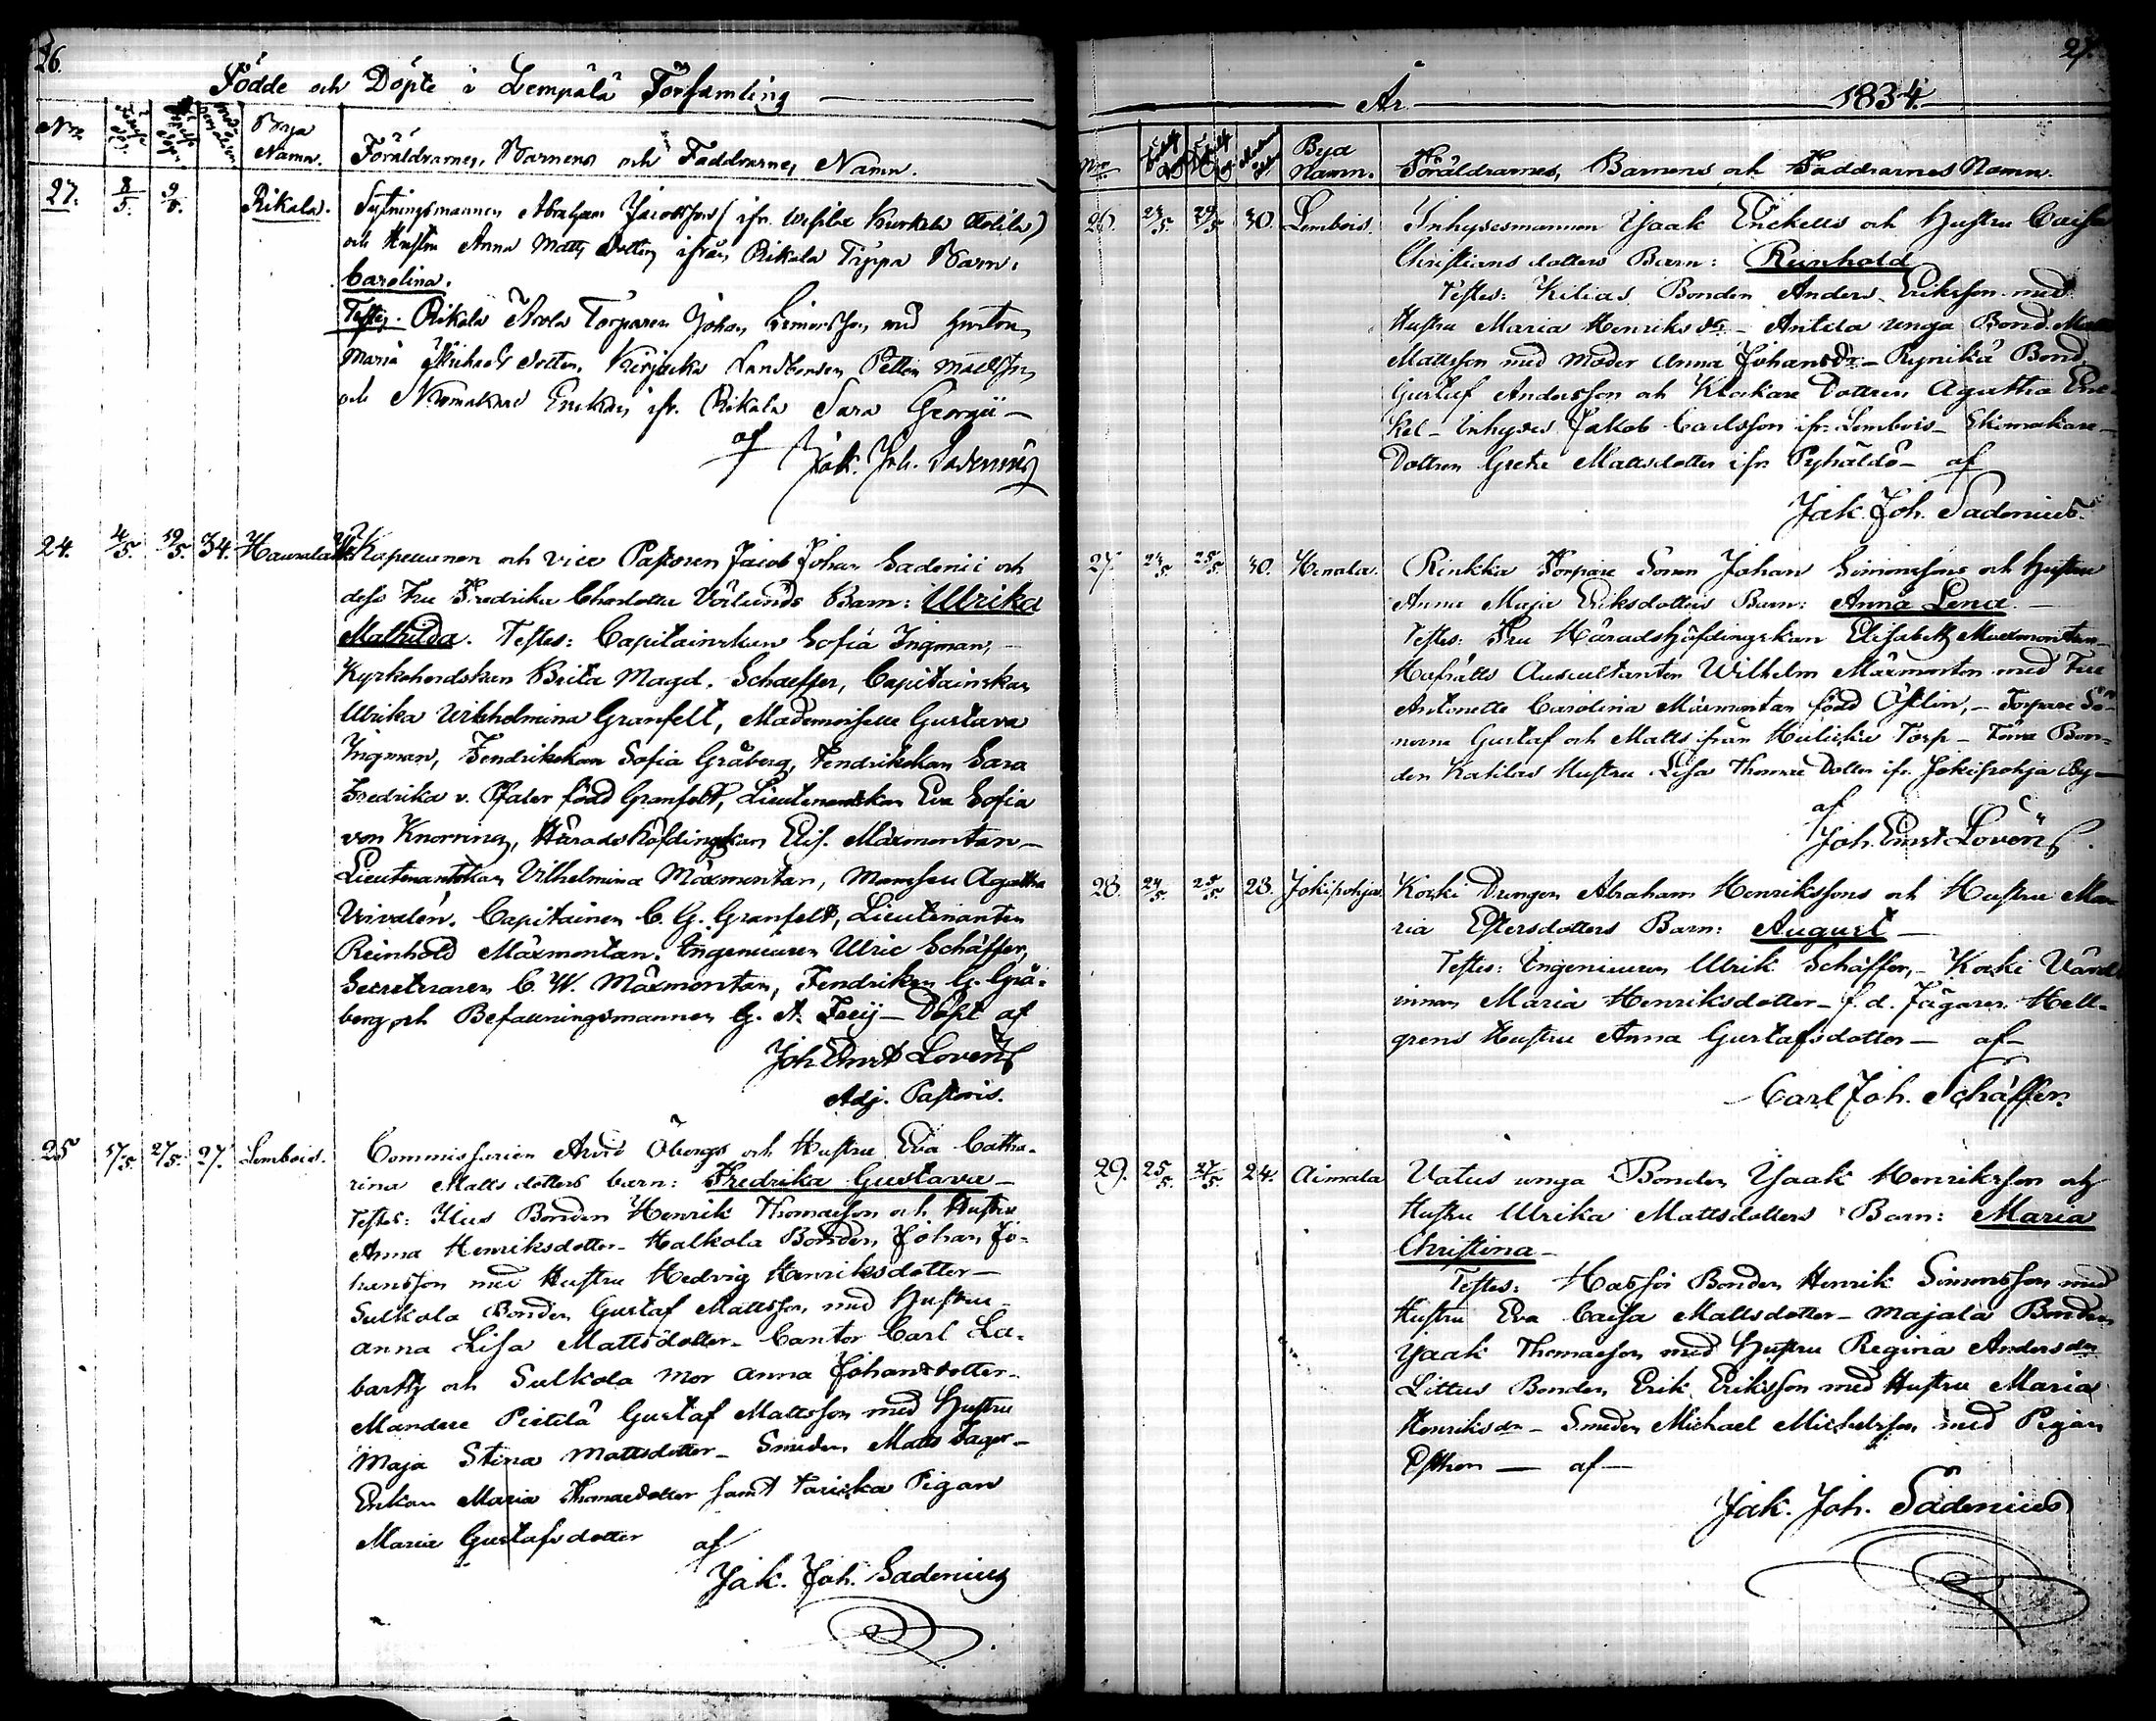 26.
Födde och Döpte i Lempälä Församling
Nro
Bya
Namn.
Föräldrarnes, Barnens och Faddrarnes Namn.
27. 8/5. 9/5. Rikala. Sytningsmannen Abraham Jacobssons (ifr.
och Hustru Anna Matts dotters ifrån Rikala Täppa Barn:
Carolina.
Testes. Rikala Arola Torparen Johan Simonsson med Hustru
Maria Michaels dotter, Landbonden Petter Mattsson
och Erickson ifr. Rikala Sara Georgii —
af
Jak. Joh. Sadenius
24. 4/5. 19/5. 34. Kapellanen och vice Pastoren Jacob Johan Sadenii och
dess Fru Fredrika Charlotta Barn: Ulrika
Mathilda. Testes: Capitainskan Sofia Ingman, —
Kyrkoherdskan Brita Magd. Schaeffer, Capitainskan
Ulrika Wilhelmina Granfelt, Mademoiselle Gustava
Ingman, Fendrikskan Sofia Gråberg, Fendrikskan Sara
Fredrika v. Pfaler född Granfelt, Lieutenantskan Eva Sofia
von Knorring, Häradshöfdingskan Elis. Märmontan —
Lieutenantskan Vilhelmina Märmontan, Mamsell Agatha
Capitainen C. G. Granfelt, Lieutenanten
Reinhold Märmontan. Ingenieuren Ulric Schäffer,
Secreteraren C. W. Märmontan, Fendriken G. Grå-
berg och Befallningsmannen G. A. — Döpt af
Joh Ernst Lovén
Adj. Pastoris.
25 17/5. 27/5. 27. Lembois. Commissarien Arvid Öbergs och Hustru Eva Catha-
rina Mattsdotters barn: Fredrika Gustava —
Testes: Bonden Henrik Thomasson och Hustru
Anna Henriksdotter — Halkola Bonden Johan Jo-
hansson med Hustru Hedvig Henriksdotter —
Sulkola Bonden Gustaf Mattsson med Hustru
Anna Lisa Mattsdotter — Cantor Carl La-
barth och Sulkola Mor Anna Johansdotter —
Mandere Pietilä Gustaf Mattsson med Hustru
Maja Stina Mattsdotter — Smeden Matts Fager —
Enkan Maria Thomasdotter samt Pigan
Maria Gustafsdotter af
Jak. Joh. Sadenius
27.
År 1834.
Nro
Bya
Namn.
Föräldrarnes, Barnens och Faddrarnes Namn.
26. 23/5. 24/5 30. Lembois. Inhysesmannen Isaak Enckells och Hustru Caisa
Christians dotters Barn: Reinhold
Testes: Kilias Bonden Anders Eriksson med
Hustru Maria Henriks dr. — Antila unga Bond. Matts
Mattsson med Moder Anna Johans Dr. — Ryynikä Bond.
Gustaf Andersson och Klockare Dottren Agatha Enc-
kel — Inhyses Jakob Carlsson ifr. Lembois —
Dottren Greta Mattsdotter ifr. Pyhäldö — af
Jak. Joh. Sadenius.
27. 23/5. 25/5. 30. Henala. Rinkka Torpare Sonen Johan Simonssons och Hustru
Anna Maja Eriksdotters Barn: Anna Lena. —
Testes: Fru Häradshöfdingskan Elisabeth Maermontan —
Hofrätts Auscultanten Wilhelm Märmontan med Fru
Antonette Carolina Märmontan född Östlin, — Torpare Sö-
nerna Gustaf och Matts ifrån Torp — Bon-
den Katilas Hustru Lisa Thomæ Dotter ifr. Jokipohja By —
af
Joh. Ernst Lovén.
28. 24/5. 25/5. 28. Jokipohja. Koski Drengen Abraham Henrikssons och Hustru Ma-
ria Estersdotters Barn: August —
Testes: Ingenieuren Ulrik Schäffer, — Koski Värd-
innan Maria Henriksdotter — f. d. Jägaren Hell-
grens Hustru Anna Gustafsdotter — af —
Carl Joh. Schäffer.
29. 25/5. 27/5. 24. Aimala Uotus unga Bonden Isaak Henriksson och
Hustru Ulrika Mattsdotters Barn: Maria
Christina —
Testes: Bonden Henrik Simonsson med
Hustru Eva Caisa Mattsdotter — Majala Bonden
Isaak Thomasson med Hustru Regina Anders dr
Littus Bonden Erik Eriksson med Hustru Maria
Henriks dr — Smeden Michael Michelsson med Pigan
Esther — af —
Jak. Joh. Sadenius